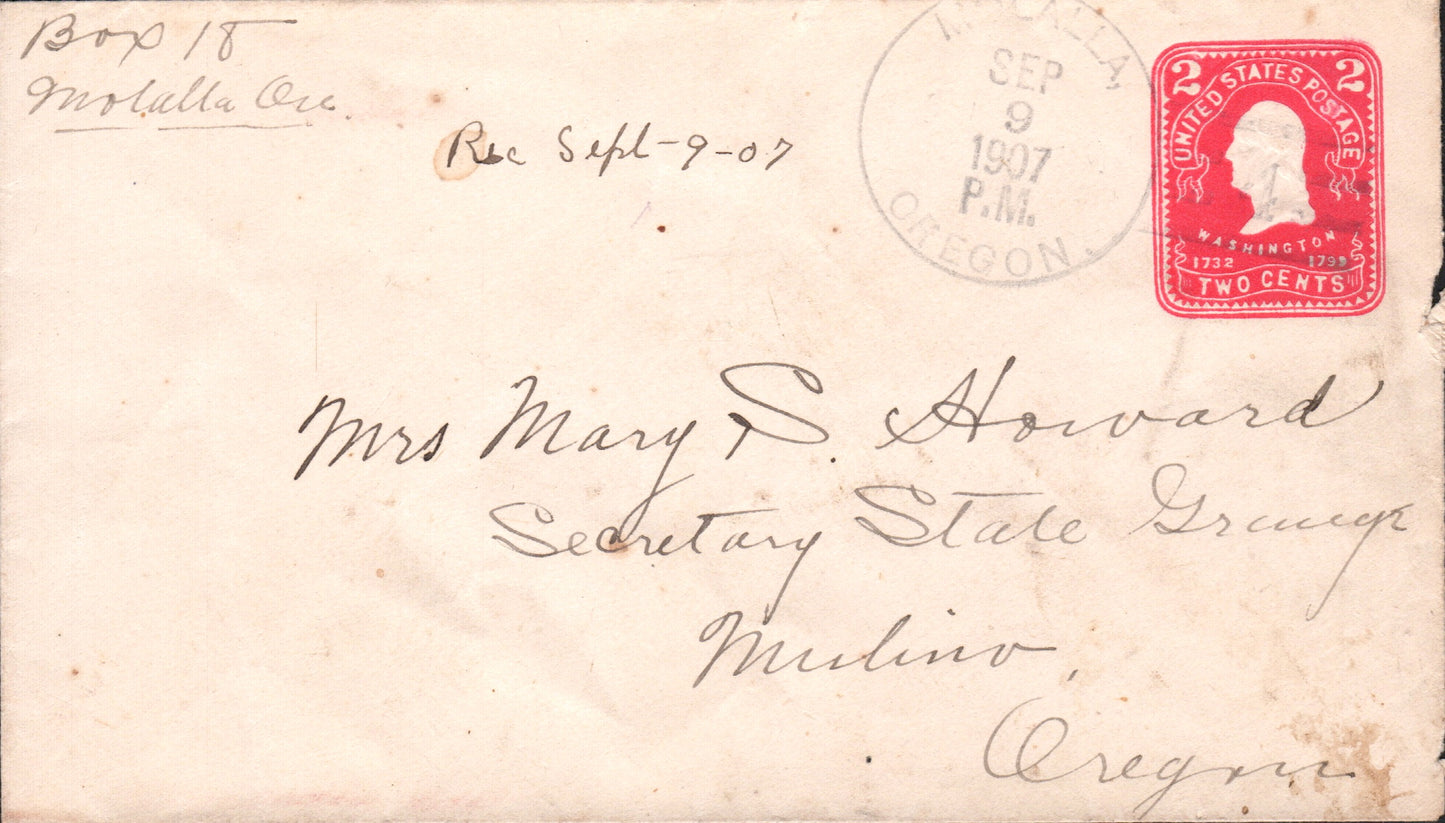 Box 18
Molalla Ore.
Rec Sept-9-07
MOLALLA,
SEP
9
1907
P.M.
OREGON.
2 2
UNITED STATES POSTAGE
WASHINGTON
1732 1799
TWO CENTS
Mrs Mary S. Howard
Secretary State Grange
Mulino,
Oregon